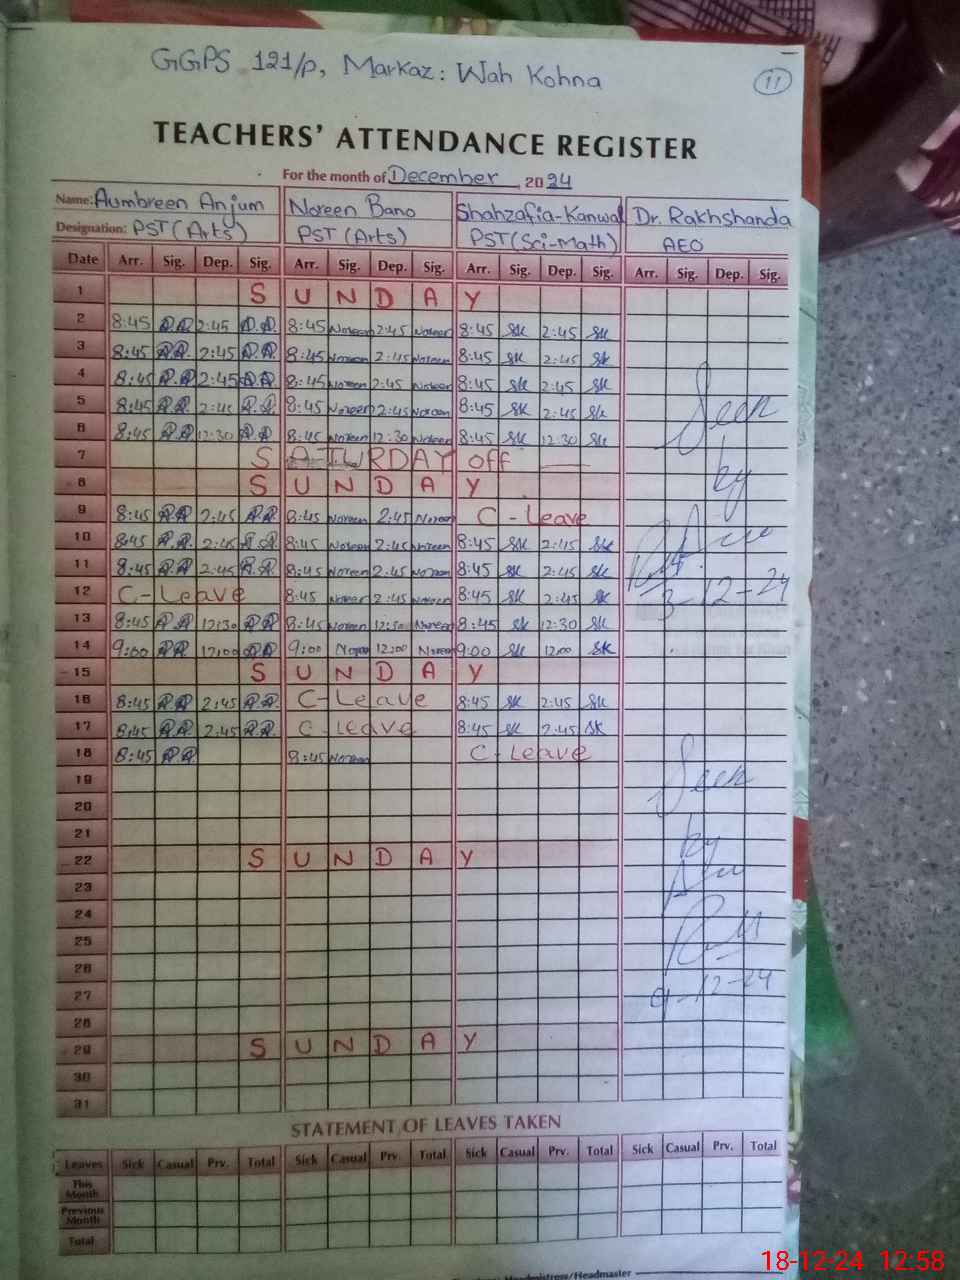 GGPS 121/P, Markaz: Wah Kohna
11
TEACHERS' ATTENDANCE REGISTER
For the month of December, 2024
Name: Aumbreen Anjum Noreen Bano Shahzafia-Kanwal Dr. Rakhshanda
Designation: PST (Arts) PST (Arts) PST (Sci-Math) AEO
Date Arr. Sig. Dep. Sig. Arr. Sig. Dep. Sig. Arr. Sig. Dep. Sig. Arr. Sig. Dep. Sig.
1 S U N D A Y
2 8:45 A.A 2:45 A.A. 8:45 Noreen 2:45 Noreen 8:45 SK 2:45 SK
3 8:45 A.A. 2:45 A.A. 8:45 Noreen 2:45 Noreen 8:45 SK 2:45 SK
4 8:45 A.A 2:45 A.A 8:45 Noreen 2:45 Noreen 8:45 SK 2:45 SK
5 8:45 A.A 2:45 A.A 8:45 Noreen 2:45 Noreen 8:45 SK 2:45 SK
6 8:45 A.A 12:30 A.A 8:45 Noreen 12:30 Noreen 8:45 SK 12:30 SK
7 SATURDAY off
8 S U N D A Y
9 8:45 A.A 2:45 A.A 8:45 Noreen 2:45 Noreen C-Leave
10 8:45 A.A 2:45 A.A 8:45 Noreen 2:45 Noreen 8:45 SK 2:45 SK
11 8:45 A.A 2:45 A.A. 8:45 Noreen 2:45 Noreen 8:45 SK 2:45 SK
12 C-Leave 8:45 Noreen 2:45 Noreen 8:45 SK 2:45 SK
13 8:45 A.A 12:30 A.A 8:45 Noreen 12:30 Noreen 8:45 SK 12:30 SK
14 9:00 A.A 12:00 A.A 9:00 Noreen 12:00 Noreen 9:00 SK 12:00 SK
15 S U N D A Y
16 8:45 A.A 2:45 A.A. C-Leave 8:45 SK 2:45 SK
17 8:45 A.A. 2:45 A.A. C-Leave 8:45 SK 2:45 SK
18 8:45 A.A. 8:45 Noreen C-Leave
19
20
21
22 S U N D A Y
23
24
25
26
27
28
29 S U N D A Y
30
31
Seen
by
3-12-24
Seen
by
9-12-24
STATEMENT OF LEAVES TAKEN
Leaves Sick Casual Prv. Total Sick Casual Prv. Total Sick Casual Prv. Total Sick Casual Prv. Total
This Month
Previous Month
Total
Headmistress/Headmaster
18-12-24 12:58